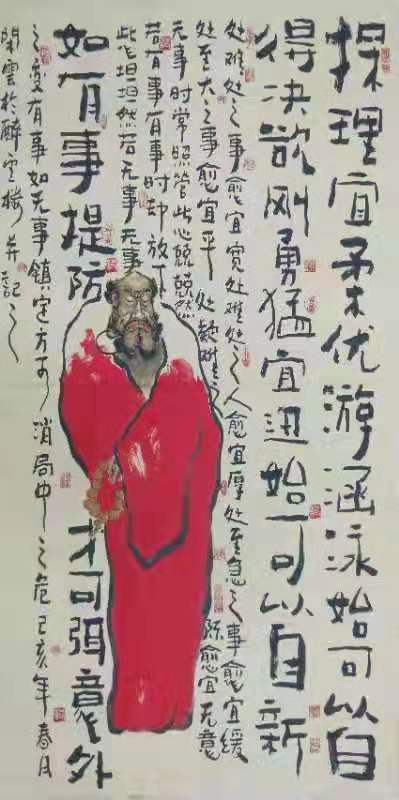 探理宜柔优游涵泳始可以自
得决欲刚勇猛宜迅始可以自新
处难处之事愈宜宽处难处之人愈宜厚处至急之事愈宜缓
处至大之事愈宜平处疑难之际愈宜无意
无事时常照管此心兢兢然
若有事有事时却放下
此心坦坦然若无事无事
如有事堤防才可弭意外
之变有事如无事镇定方可消局中之危己亥年春月
閑雲於醉雲楼并記之